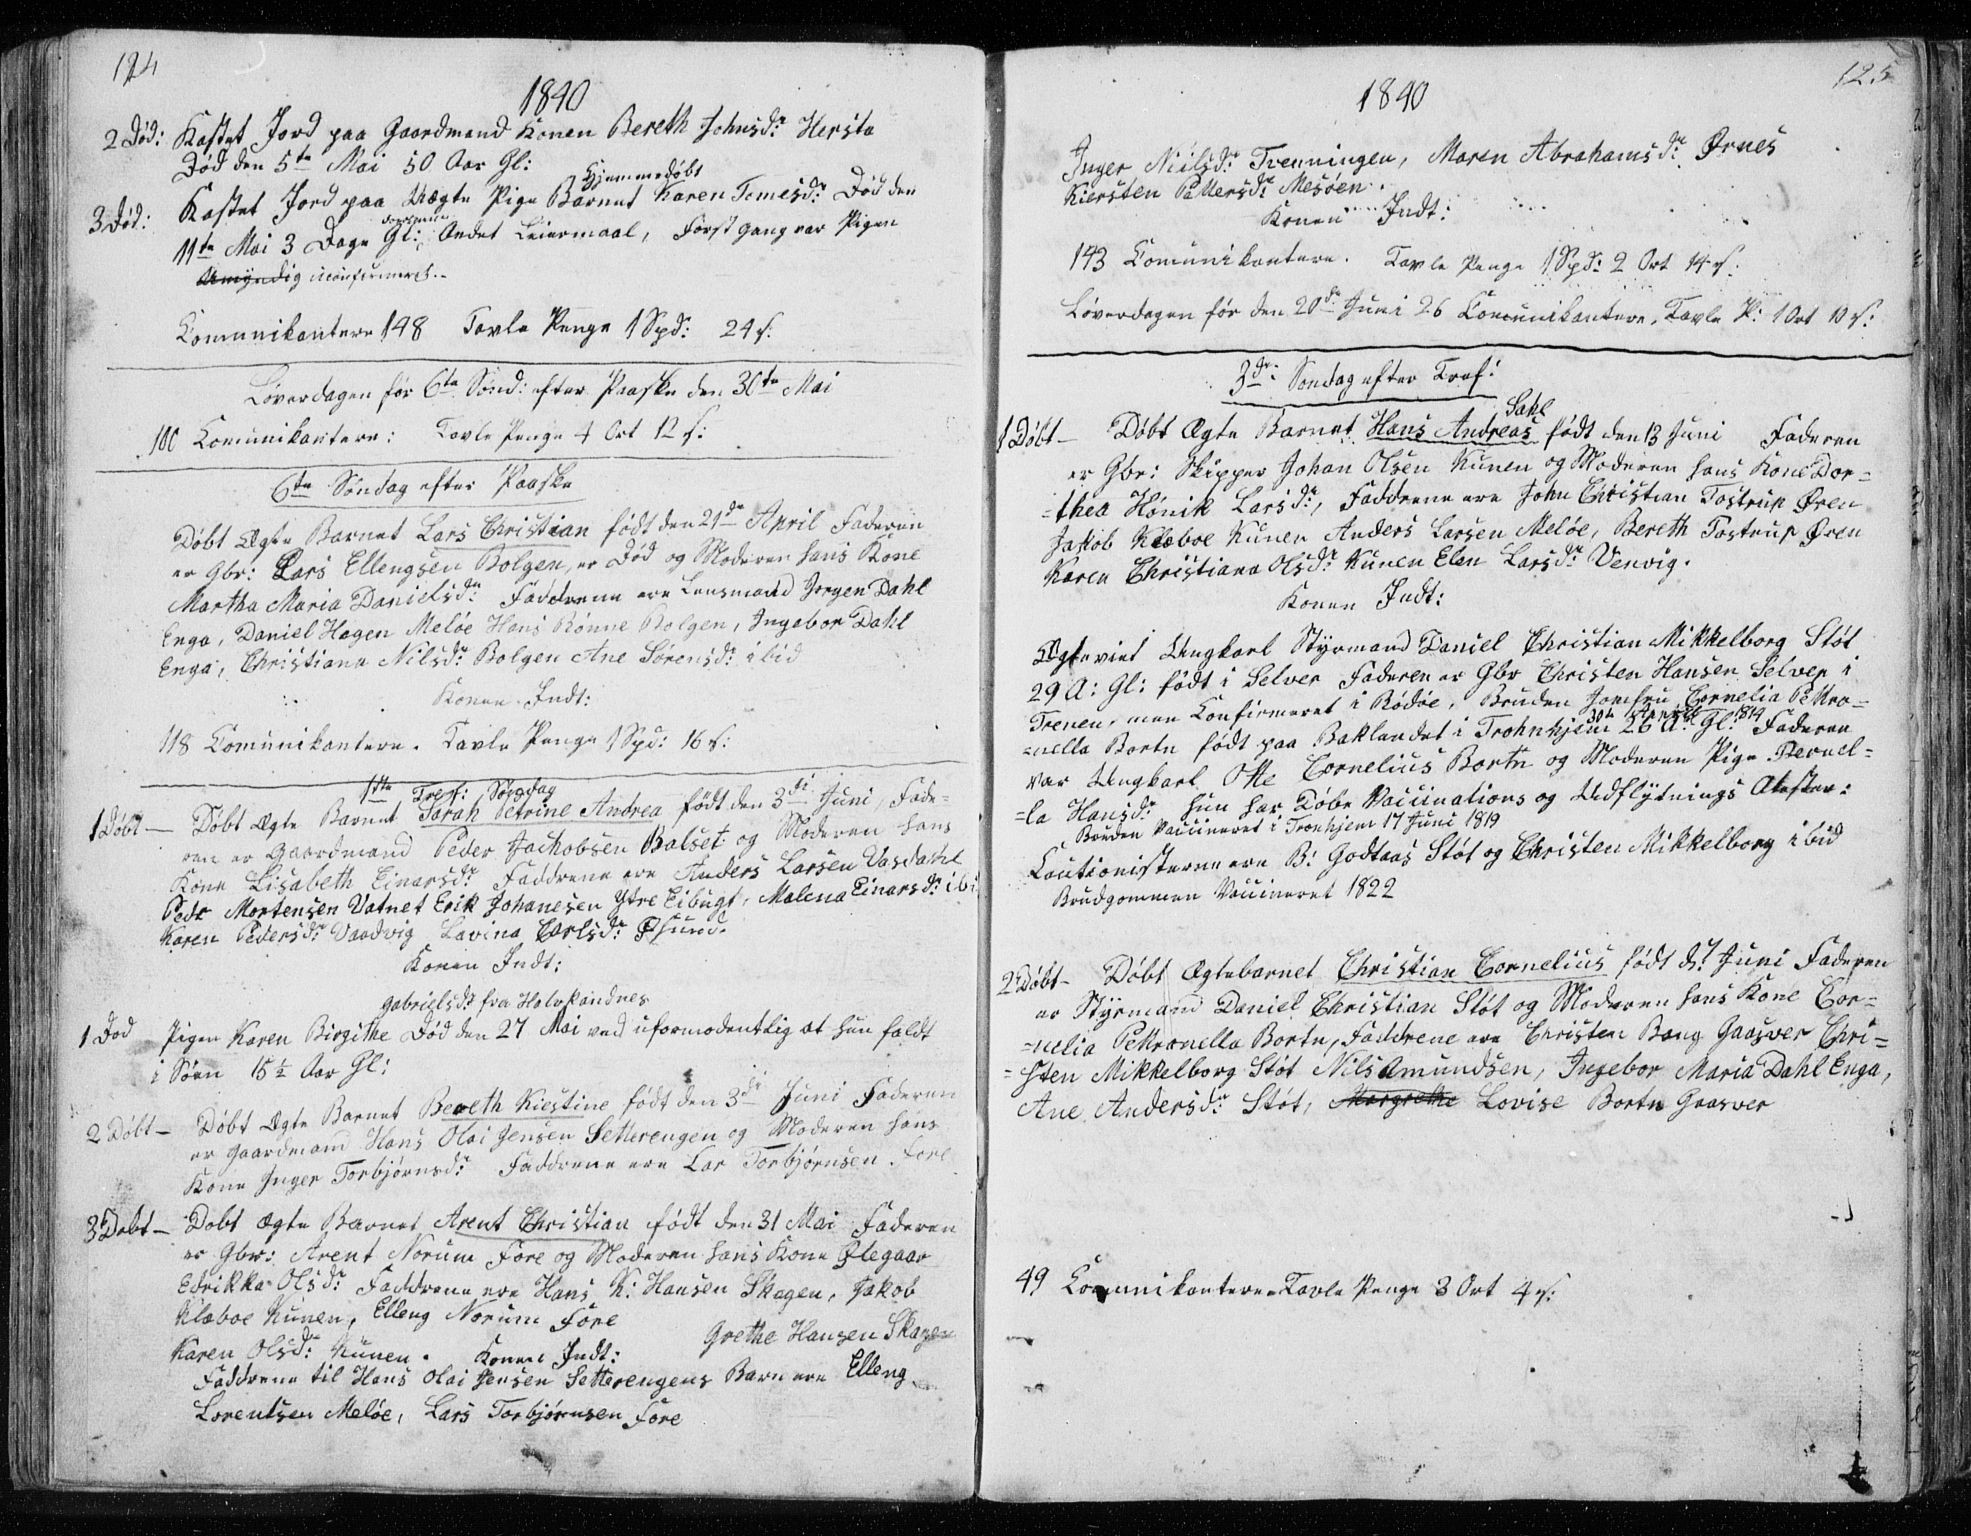 124
1840
2 Død: Kastet Jord paa Gaardmand Konen Bereth Johnsd:r Hersta
Død den 5te Mai 50 Aar Gl:
Hjemmedøbt
3 Død: Kastet Jord paa Uægte Pige Barnet Karen Tomesd:r Død den
11te Mai 3 Dage Gl: Andet Leiermaal, Først gang var Pigen
Umyndig uconfirmeret.
Comunikantere 148 Tavle Penge 1 Spd: 24 s:
Løverdagen før 6te Sønd: efter Paaske den 30te Mai
100 Comunikantere: Tavle Penge 4 Ort 12 s:
6te Søndag efter Paaske
Døbt Ægte Barnet Lars Christian født den 21de April Faderen
er Gbr: Lars Ellengsen Bolgen, er Død og Moderen hans Kone
Martha Maria Danielsd:r Faddrene ere Lensmand Jørgen Dahl
Enga, Daniel Hagen Meløe Hans Rønne Bolgen, Ingebor Dahl
Enga, Christiana Nilsd:r Bolgen Ane Sørensd:r ibid
Konen Indt:
118 Comunikantere. Tavle Penge 1 Spd: 16 s:
1ste Tref: Søndag
1 Døbt — Døbt Ægte Barnet Sarah Petrine Andrea født den 3di Juni, Fade-
ren er Gaardmand Peder Jachobsen Balset og Moderen hans
Kone Lisabeth Einarsd:r Faddrene ere Anders Larsen Vasdahl
Pedr Mortensen Vatnet Erik Johanesen Ytre Eibugt, Malena Einarsd:r ibi
Karen Pedersd:r Vaadvig Lavina Carlsd:r Øsund.
Konen Indt:
Gabrielsd:r fra Halvkandnes
1 Død Pigen Karen Birgithe Død den 27 Mai ved uformodentlig at hun faldt
i Søen 15½ Aar Gl:
2 Døbt — Døbt Ægte Barnet Bereth Kiestine født den 3di Juni Faderen
er Gaardmand Hans Olai Jensen Setterengen og Moderen hans
Kone Inger Torbjørnsd:r Faddrene ere Lar Torbjørnsen Fore
3 Døbt — Døbt Ægte Barnet Arent Christian født den 31 Mai Faderen
er Gbr: Arent Norum Fore og Moderen hans Kone Olegaar
Edrikka Olsd:r Faddrene ere Hans K: Hansen Skagen, Jakob
Klæboe Kunen, Elleng Norum Fore
Grethe Hansen Skagen
Karen Olsd:r Kunen. Konen Indt:
Faddrene til Hans Olai Jensen Setterengens Barn ere Elleng
Lorentsen Meløe, Lars Torbjørnsen Fore
125
1840
Inger Niilsd:r Trenningen, Maren Abrahamsd:r Ørnes
Kiersten Pettersd:r Mesøen.
Konen Indt:
143 Comunikantere. Tavle Penge 1 Spd: 2 Ort 14 s:
Løverdagen før den 20de Juni 26 Comunikantere, Tavle P: 1 Ort 10 s:
3de Søndag efter Tref:
Sahl
1 Døbt — Døbt Ægte Barnet Hans Andreas født den 13 Juni Faderen
er Gbr: Skipper Johan Olsen Kunen og Moderen hans Kone Dor=
=thea Hønik Larsd:r, Faddrene ere John Christian Tostrup Øren
Jakob Klæboe Kunen Anders Larsen Meløe, Bereth Tostrup Øren
Karen Christiana Olsd:r Kunen Elen Larsd:r Venvig.
Konen Indt:
Ægteviet Ungkarl Styrmand Daniel Christian Mikkelborg Støt
29 A: Gl: født i Selver Faderen er Gbr Christen Hansen Selver i
Trenen, men Confirmeret i Rødøe, Bruden Jomfru Cornelia Petro=
30te April 1814
=nella Bortn født paa Baklandet i Trohnhjem 26 A: Gl: Faderen
var Ungkarl Otte Cornelius Bortn og Moderen Pige Pernel=
=la Hansd:r hun har Døbe Vaccinations og Udflytnings Atester:
Bruden Vaccineret i Tronhjem 17 Juni 1819
Cautionisterne ere B: Godtaas Støt og Christen Mikkelborg ibid
Brudgommen Vaccineret 1822
2 Døbt — Døbt Ægtebarnet Christian Cornelius født d: 7 Juni Faderen
er Styrmand Daniel Christian Støt og Moderen hans Kone Cor=
=nelia Pettronella Bortn, Faddrene ere Christen Bang Gaasver Chri=
=sten Mikkelborg Støt Nils Amundsen, Ingebor Maria Dahl Enga,
Ane Andersd:r Støt, Margrethe Lovise Bortn Gaasver
49 Comunikantere Tavle Penge 3 Ort 4 s: